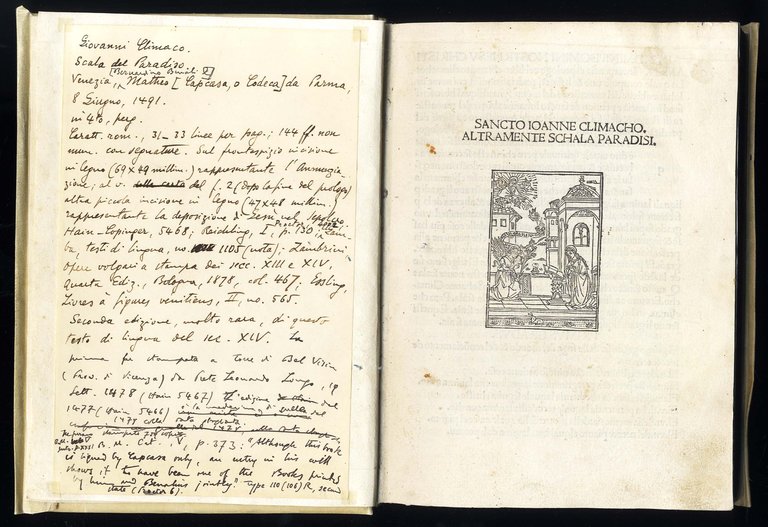 Giovanni Climaco.
Scala del Paradiso.
[Bernardino Benali e]
Venezia, Mattheo [Capcasa, o Codeca] da Parma,
8 Giugno, 1491.
in 4to, perg.
Caratt. rom., 31-33 linee per pag.; 144 ff. non
num. con segnature. Sul frontespizio incisione
in legno (69 x 49 millim.) rappresentante l'Annunzia-
zione; al v. del f. 2 (dopo la fine del prologo)
altra piccola incisione in legno (47 x 48 millim.)
rappresentante la deposizione di Gesù nel sepolcro
Hain-Copinger, 5468; Reichling, I, p. 130; Zam-
Proctor
bri, testi di lingua, no. 1105 (nota); Zambrini,
Opere volgari a stampa dei secc. XIII e XIV,
quarta Ediz., Bologna, 1878, col. 467; Essling,
Livres à figures vénitiens, II, no. 565.
Seconda edizione, molto rara, di questo
testo di lingua del sec. XIV. La
prima fu stampata a Torre di Bel Vicin
(Prov. di Vicenza) da Leonardo Longo, 19
Sett. 1478 (Hain 5467) L'edizione del
1477 (Hain 5466) è la medesima di quella del
1478 colla data
B. M. Cat. V, p. 373: "Although this book
is signed by Capcasa only, an entry in his will
shows it to have been one of the Books printed
by him and Benalius jointly." Type 110 (106) R, second
state (Proctor 6).
SANCTO IOANNE CLIMACHO.
ALTRAMENTE SCHALA PARADISI.